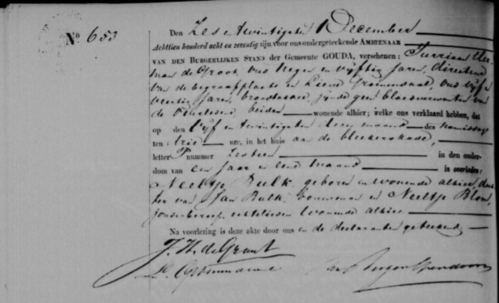 No 653
Den Zes en twintigsten December
Achttien honderd acht en zeventig zijn voor ons ondergeteekende AMBTENAAR
VAN DEN BURGERLIJKEN STAND der Gemeente GOUDA, verschenen: Jurrian Her
man de Groot, oud negen en vijftig jaren, directeur
van de begraafplaats en Leend oud vijf en
veertig jaren, geen bloedverwanten van
de overledene beiden wonende alhier; welke ons verklaard hebben, dat
op den Vijf en twintigsten dezer maand des namiddags
ten drie ure, in het huis aan de bleekerskade,
letter nummer Zestien in den ouder-
dom van een jaar en eene maand is overleden:
Neeltje Bulk geboren en wonende alhier, doch
ter van Jan Bulk, en Neeltje Blom,
zonder beroep, echtelieden wonende alhier
Na voorlezing is deze akte door ons en de declaranten geteekend.
J. H. de Groot